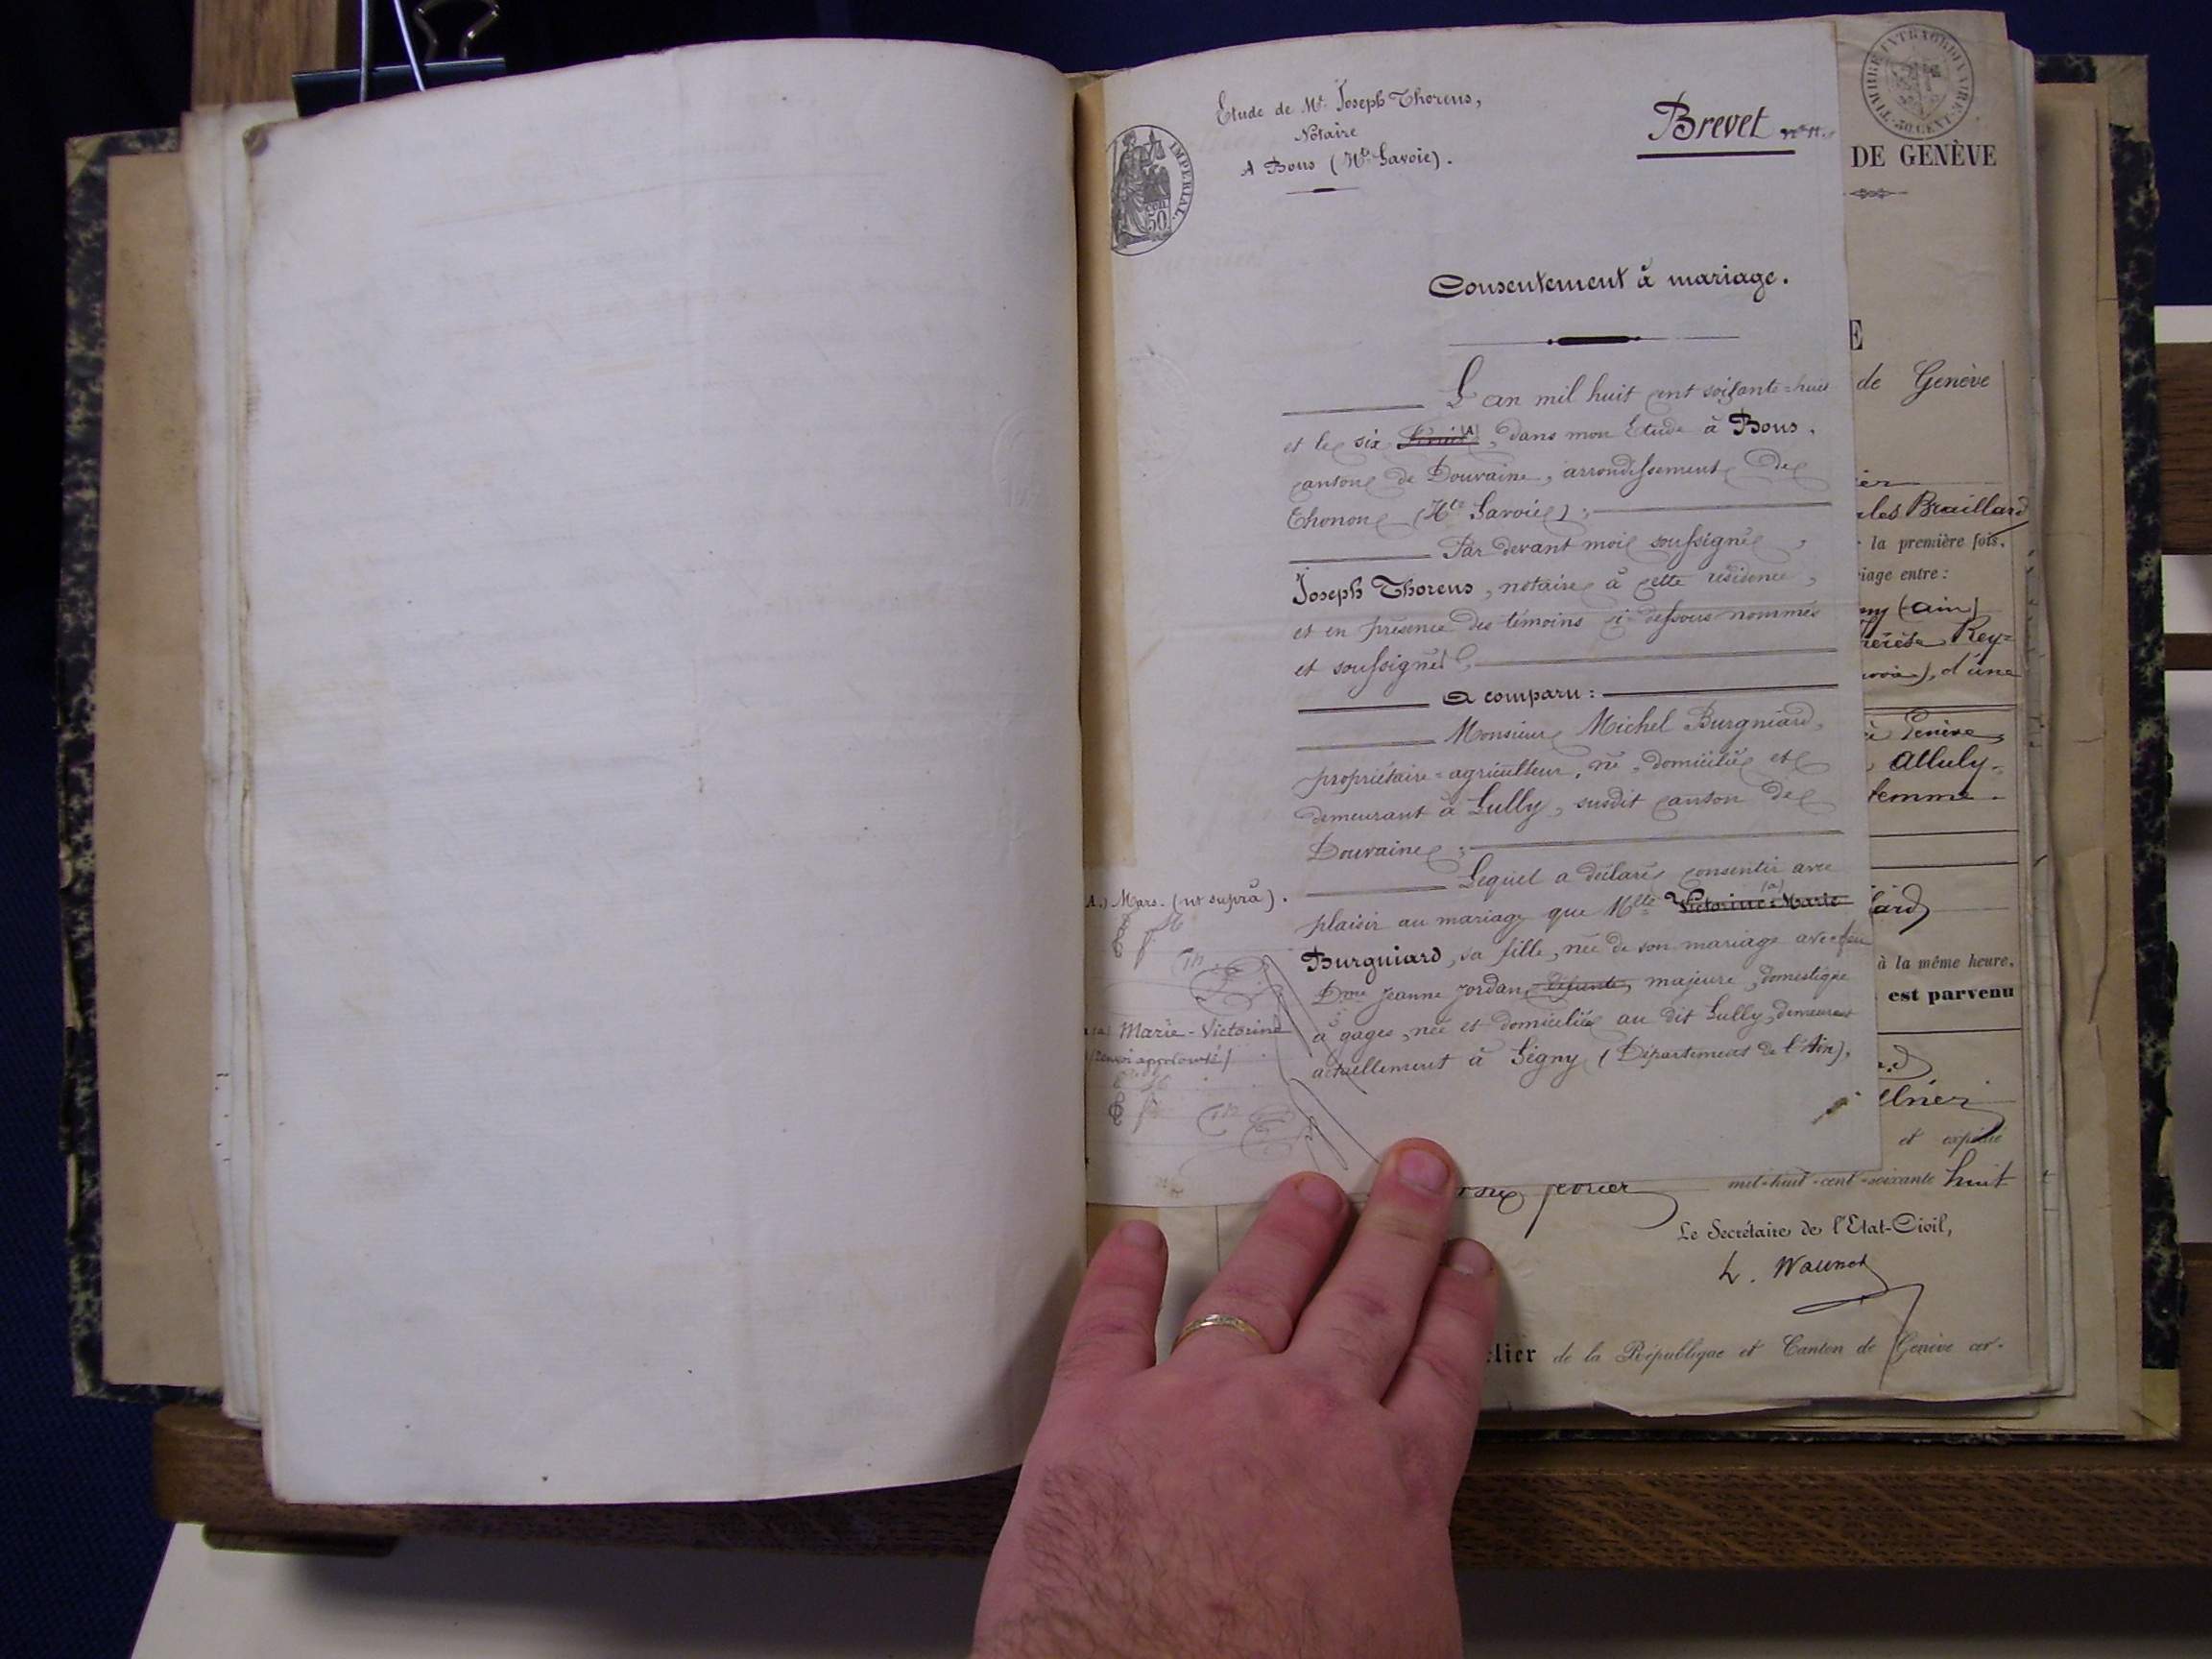 Etude de Me. Joseph Thorens,
Notaire
A Bons (Hte Savoie).
Brevet
IMPERIAL.
50
Consentement à mariage.
L'an mil huit cent soixante-huit
et le six (A), dans mon Etude à Bons,
canton de Douvaine, arrondissement de
Thonon (Hte Savoie);
Par devant moi soussigné,
Joseph Thorens, notaire à cette résidence,
et en présence des témoins ci-dessous nommés
et soussignés,
A comparu:
Monsieur Michel Burgniard,
propriétaire-agriculteur, né, domicilié et
demeurant à Lully, susdit canton de
Douvaine;
Lequel a déclaré consentir avec
plaisir au mariage que Mlle Victorine-Marie (a)
Burgniard, sa fille, née de son mariage avec feu
Dme Jeanne Jordan, défunte, majeure, domestique
à gages, née et domiciliée au dit Lully, demeurant
actuellement à Ségny (Département de l'Ain),
A.) Mars. (ut suprà).
(a) Marie-Victorine
(renvoi approuvé)
TIMBRE EXTRAORDINAIRE
50 CENT.
DE GENÈVE
E
de Genève
ier
les Braillard
la première fois.
iage entre:
ny (ain)
hérèse Rey=
d'une
à Genève
femme.
ard
à la même heure.
est parvenu
et expédié
six février mil-huit-cent-soixante huit
Le Secrétaire de l'Etat-Civil,
elier de la République et Canton de Genève cer-